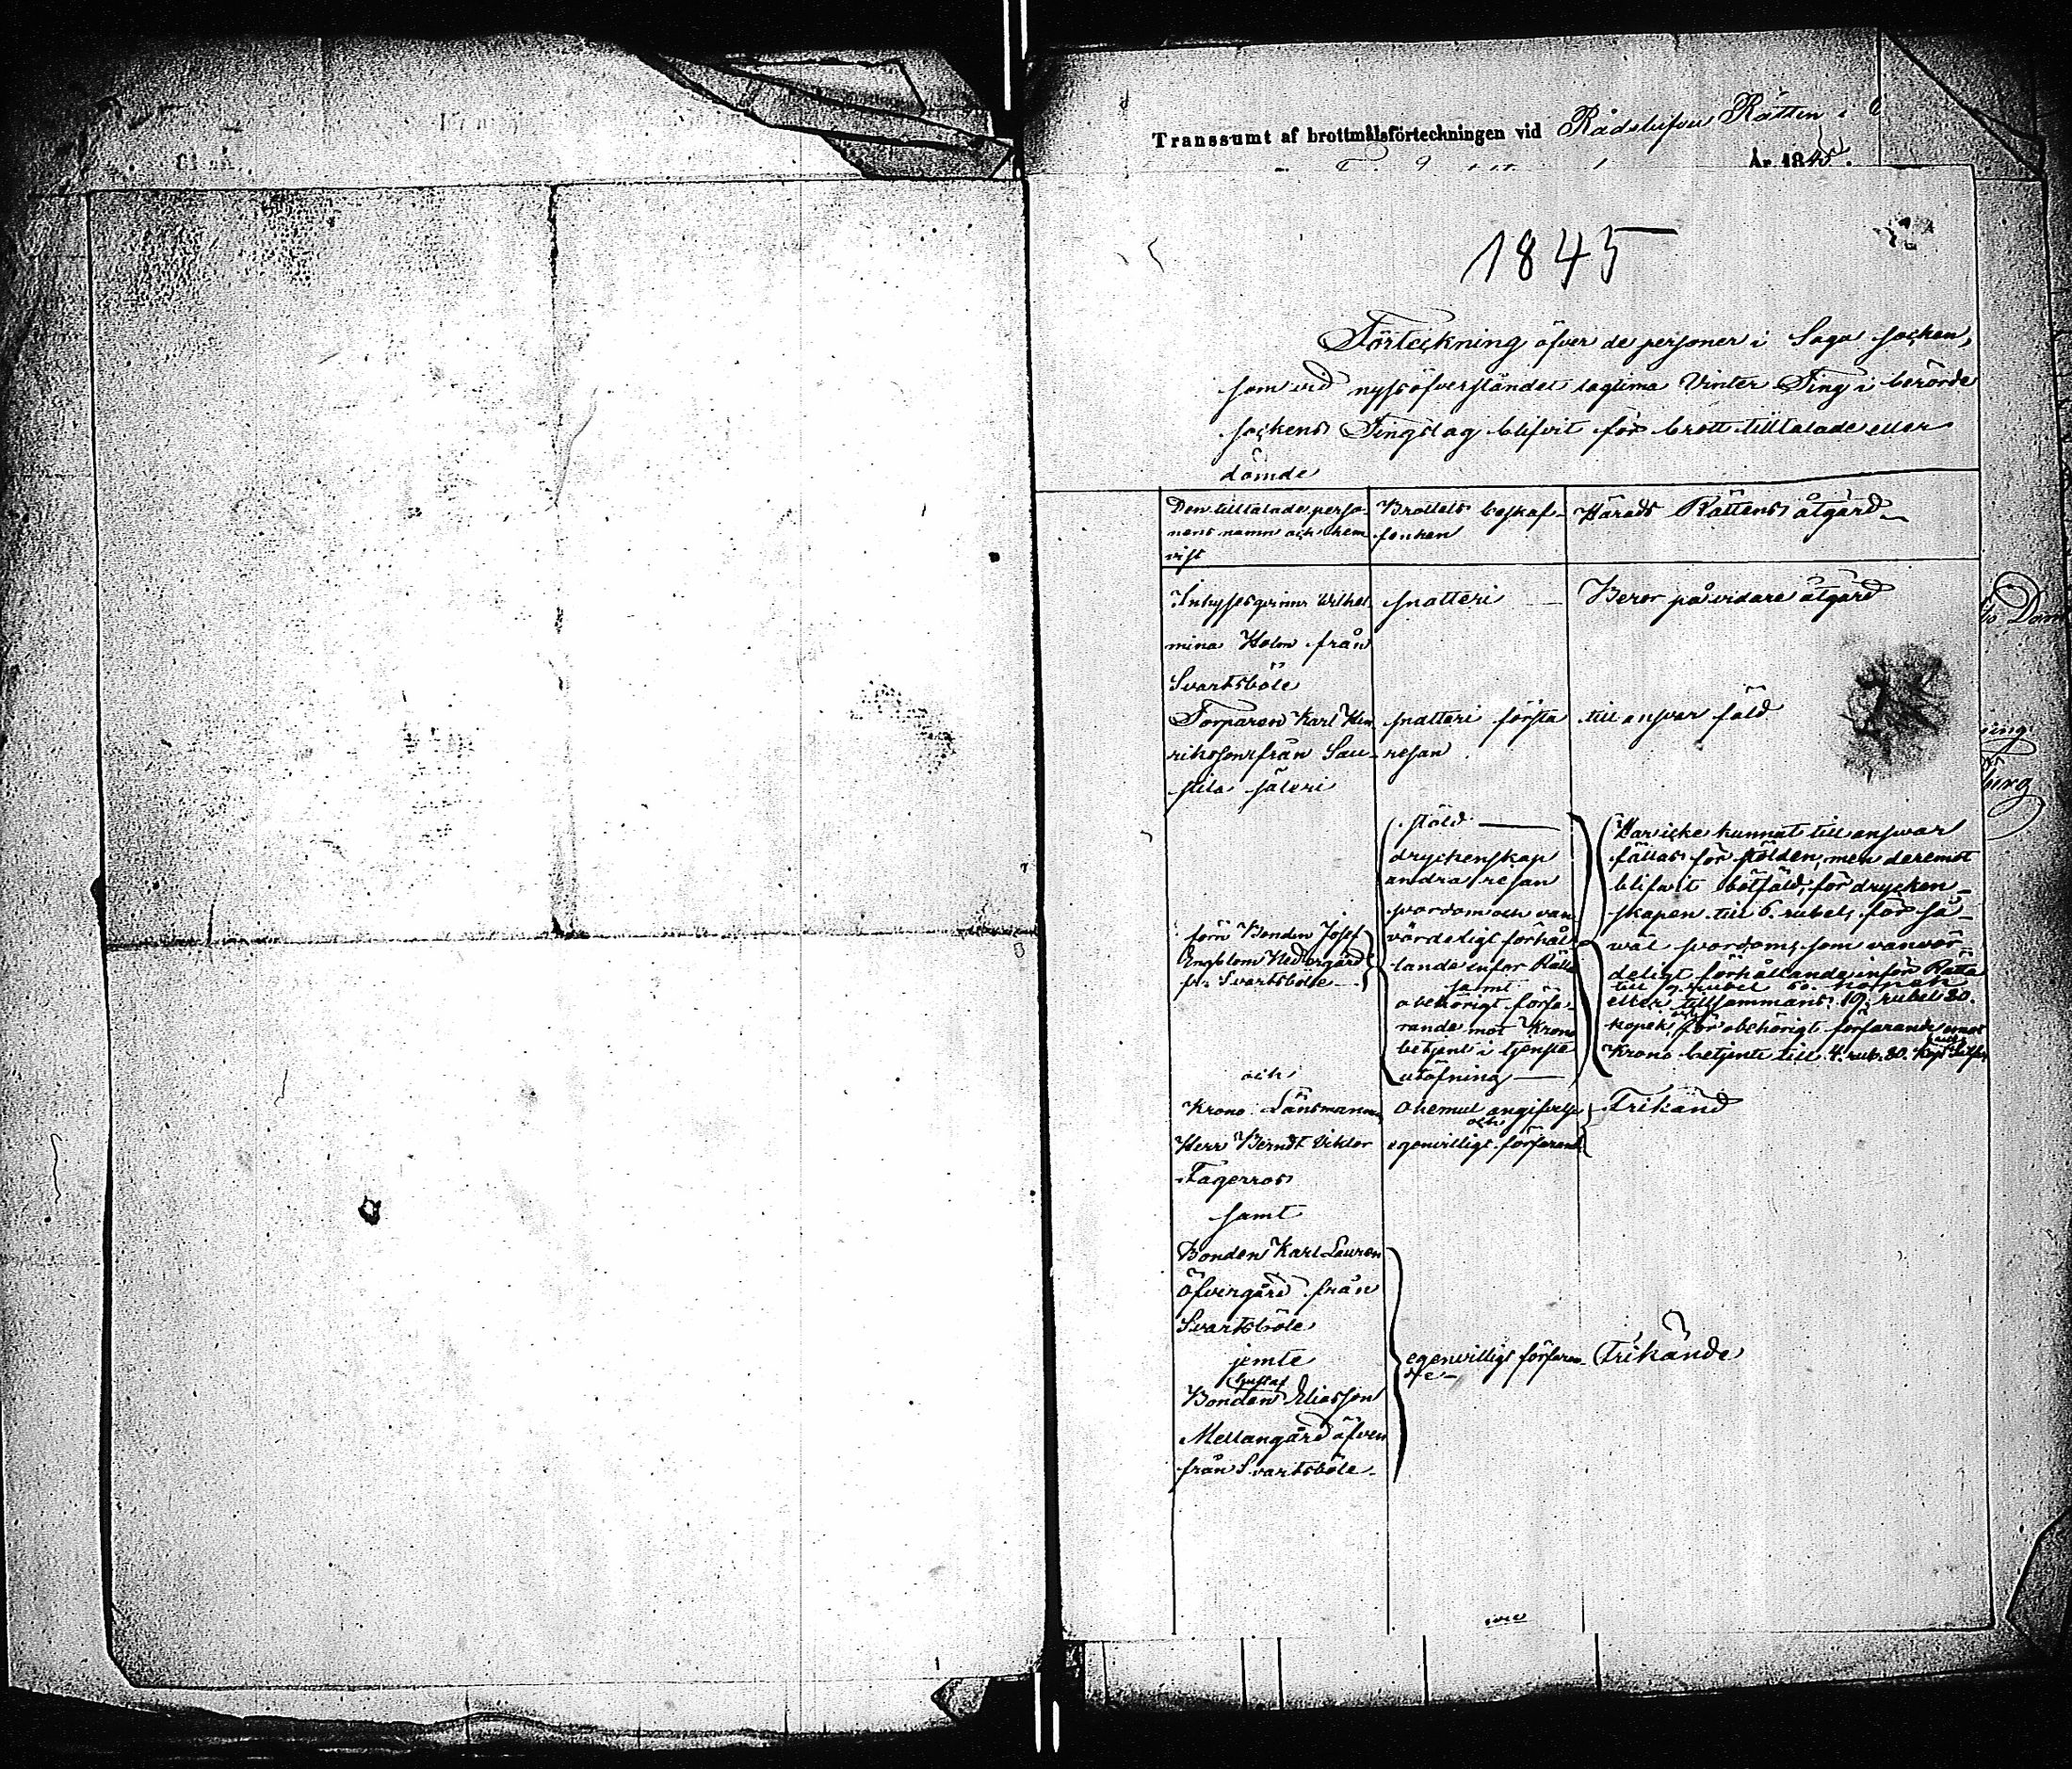 Transsumt af brottmålsförteckningen vid Rådstufvu Rätten i
År 1845.
1845
Förteckning öfver de personer i Sagu socken,
som vid nyssöfverståndet lagtima Vinter Ting i berörde
sockens Tingslag blifvit för brott tilltalade eller
dömde
Den tilltalade perso-
nens namn och hem
vist
Brottets beskaf-
fenhet
Härads Rättens åtgärd
Inhysesqvinnan Vilhel
mina Holm från
Svartsböle
snatteri
Beror på vidare åtgärd
Torparen Karl Hen
riksson från Sau-
stila säteri
snatteri första
resan
till ansvar fäld
förre Bonden Josef
Engblom Nedergård
fr. Svartsböle
och
stöld
dryckenskap
andra resan
svordom och van
värdeligt förhål
lande inför Rätta
samt
obehörigt förfa-
rande mot Krono
betjent i tjenste
utöfning
Har icke kunnat till ansvar
fällas för stölden, men deremot
blifvit botfäld, för drycken-
skapen till 6. rubel, för så-
väl svordom, som vanvör-
deligt förhållande inför Rätta
till 9. rubel 60. kopek
eller tillsammans 19. rubel 20.
kopek, för obehörigt förfarande emot
Krono betjente till 4. rub. 80. kop. Silfver
Krono Länsmannen
Herr Berndt Viktor
Fagerros
samt
Ohemul angifvelse
och
egenvilligt förfarande
Frikänd
Bonden Karl Lauren
Öfvergård från
Svartsböle
jemte
Gustaf
Bonden Eliasson
Mellangård äfven
från Svartsböle
egenvilligt förfaran-
de
Frikände